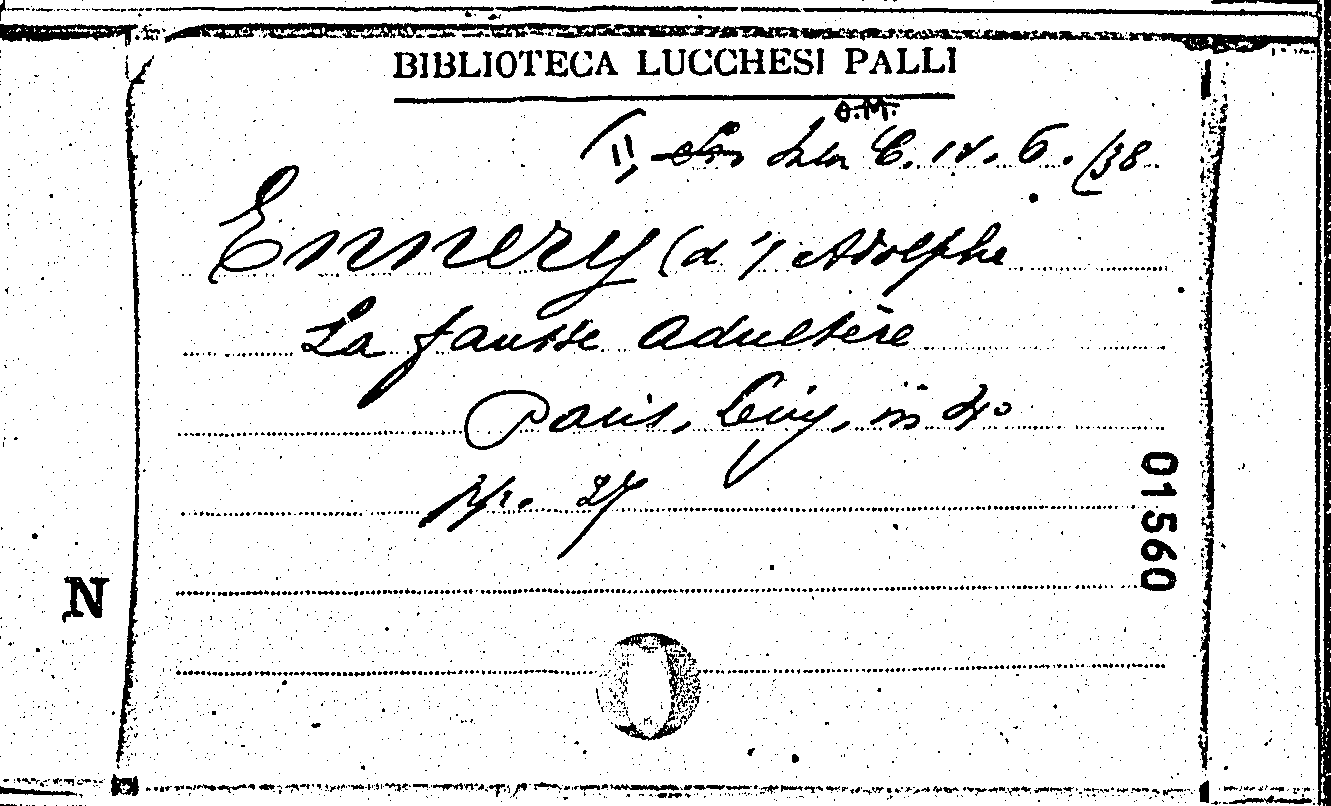 BIBLIOTECA LUCCHESI PALLI
O.M.
C. 6. /38
Ennery (d') Adolphe
La fausse adultère
Paris, Lévy, in 4°
pp. 27
01560
N